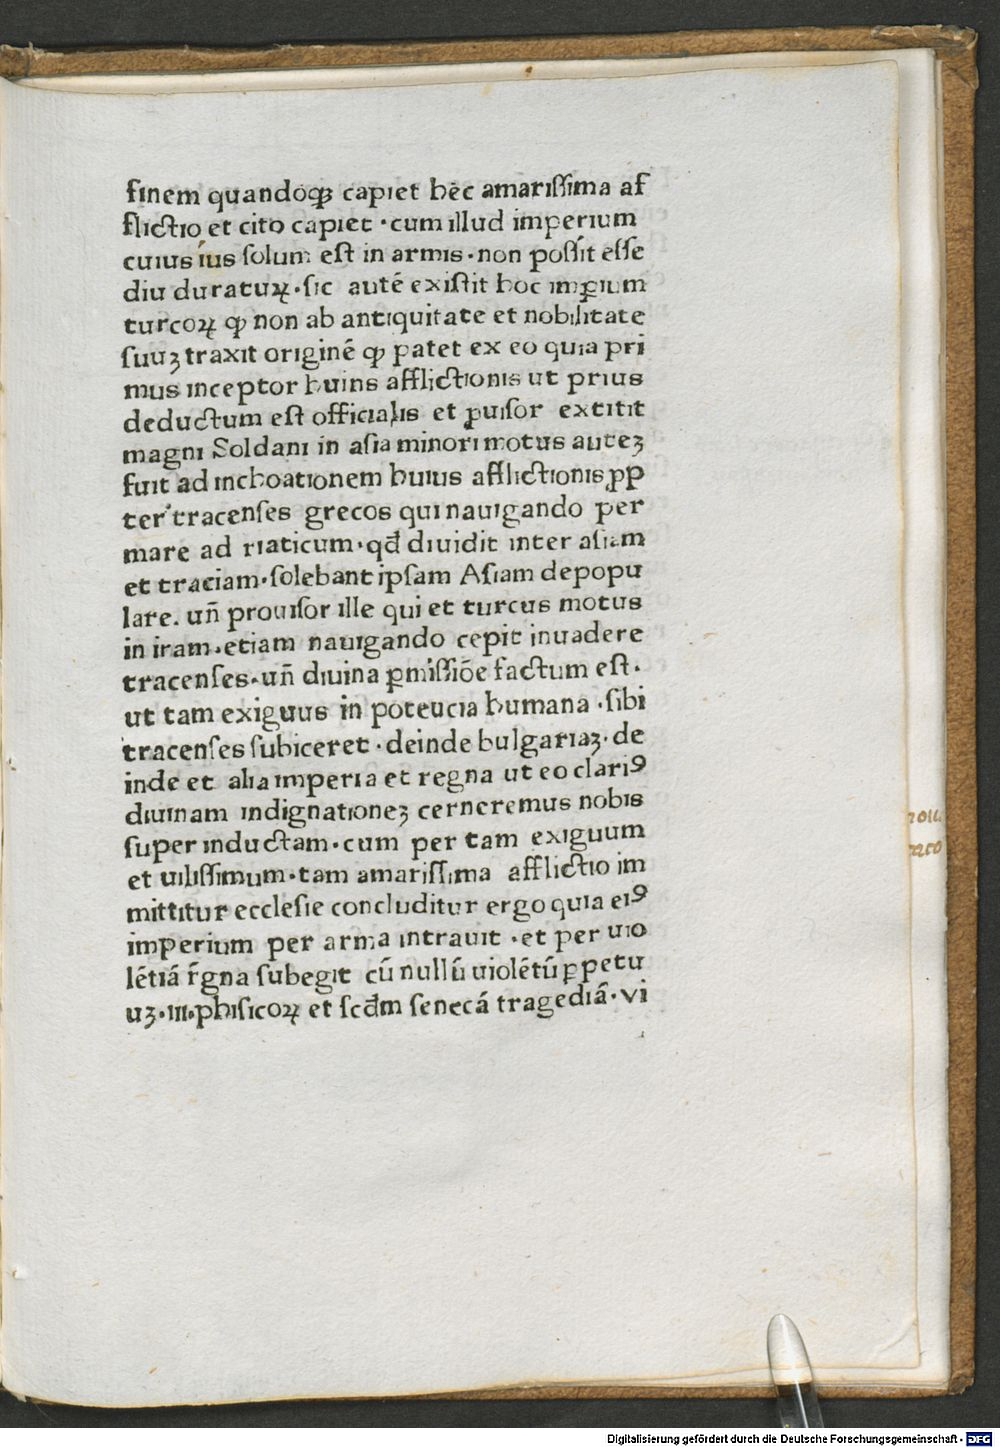 finem quandoqꝫ capiet hēc amarissima af
flictio et cito capiet · cum illud imperium
cuius íus solum est in armis · non possit esse
diu duraturꝝ · sic autē existit hoc imꝑium
turcoꝝ ꝙ non ab antiquitate et nobilitate
suuꝫ traxit originē ꝙ patet ex eo quia pri
mus inceptor huins afflictionis ut prius
deductum est officialis et ꝑuisor extitit
magni Soldani in asia minori motus auteꝫ
fuit ad inchoationem huius afflictionis ꝓp
ter tracenses grecos qui nauigando per
mare ad riaticum · qđ diuidit inter asiam
et traciam · solebant ipsam Asiam depopu
lare. un̄ prouisor ille qui et turcus motus
in iram · etiam nauigando cepit inuadere
tracenses · un̄ diuina ꝑmissiōe factum est ·
ut tam exiguus in poteucia humana · sibi
tracenses subiceret · deinde bulgariaꝫ · de
inde et alia imperia et regna ut eo clariꝰ
diuinam indignationeꝫ cerneremus nobis
super inductam · cum per tam exiguum
et uilissimum · tam amarissima afflictio im
mittitur ecclesie concluditur ergo quia eiꝰ
imperium per arma intrauit · et per uio
lētiā r̄gna subegit cū nullū uiolētū ꝑpetu
uꝫ · III · phisicoꝝ et scđm senecā tragediā · vi
Digitalisierung gefördert durch die Deutsche Forschungsgemeinschaft - DFG